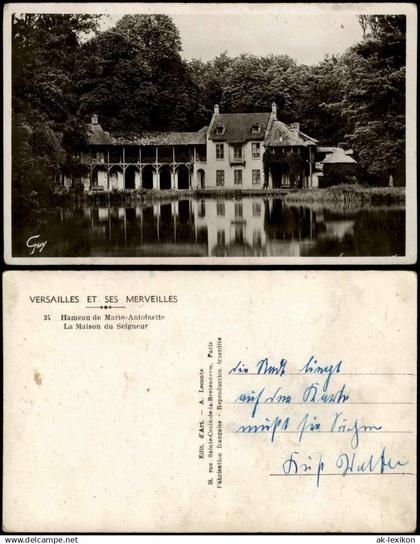 Guy
VERSAILLES ET SES MERVEILLES
34 Hameau de Marie-Antoinette
La Maison du Seigneur
Edit. d'Art. - A. Leconte
38, rue Sainte-Croix-de-la-Bretonnerie, Paris
Fabrication française - Reproduction interdite
die Stadt liegt
auf der Karte
müßt sie Suchen
Kuß Walter
ak-lexikon
© www.ak-lexikon.de